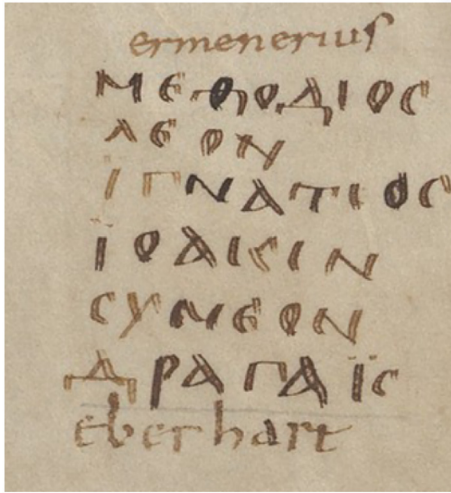 ermenerius
ΜΕΘΟΔΙΟϹ
ΛΕΟΝ
ΙΓΝΑΤΙΟϹ
ΙΟΑΚΙΝ
ϹΥΜΕΟΝ
ΔΡΑΓΑΪϹ
eberhart